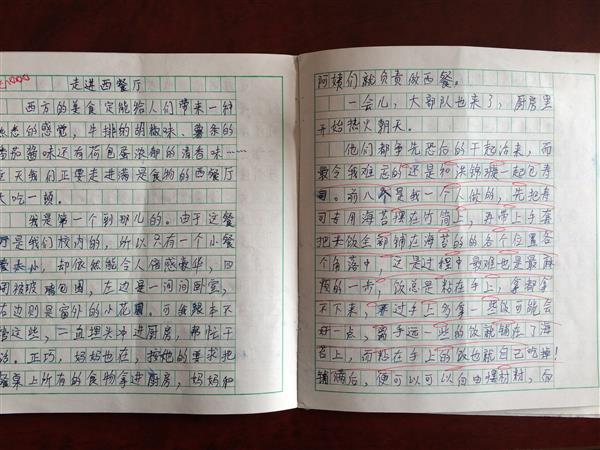 走进西餐厅
西方的美食定能给人们带来一种
熟悉的感觉，牛排的胡椒味、薯条的
番茄酱味还有荷包蛋淡郁的清香味……
天我们正要走进满是食物的西餐厅
大吃一顿。
我是第一个到那儿的。由于这餐
厅是我们校内的，所以只有一个小餐
虽小，却依然能令人倍感豪华，四
周被玻璃包围，左边是一间间卧室，
右边则是窗外的小花园。可我根本不
管这些，一直埋头冲进厨房，帮忙干
活。正巧，妈妈也在，按她的要求把
餐桌上所有的食物拿进厨房，妈妈和
阿姨们就负责做西餐。
一会儿，大部队也来了，厨房里
开始热火朝天。
他们都争先恐后的干起活来，而
最令我难忘的还是和洪锦璇一起包寿
司。前八个是我一个人做的，先把寿
司专用海苔摆在竹简上，再带上手套
把米饭全部铺在海苔的的各个位置各
个角落中，这是过程中最难也是最麻
烦的一步，饭总是粘在手上，拿都拿
不下来，要过手上多拿一些饭可能会
好一点，离手远一些的饭就铺在了海
苔上，而粘在手上的饭也就自己吃掉！
铺满后，便可以可以向内摆材料，向